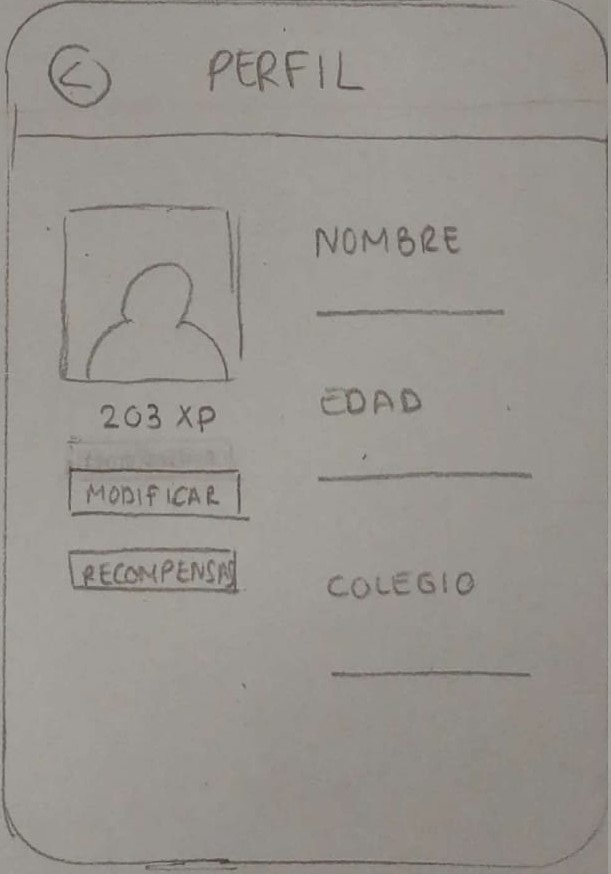 PERFIL
203 XP
MODIFICAR
RECOMPENSAS
NOMBRE
EDAD
COLEGIO